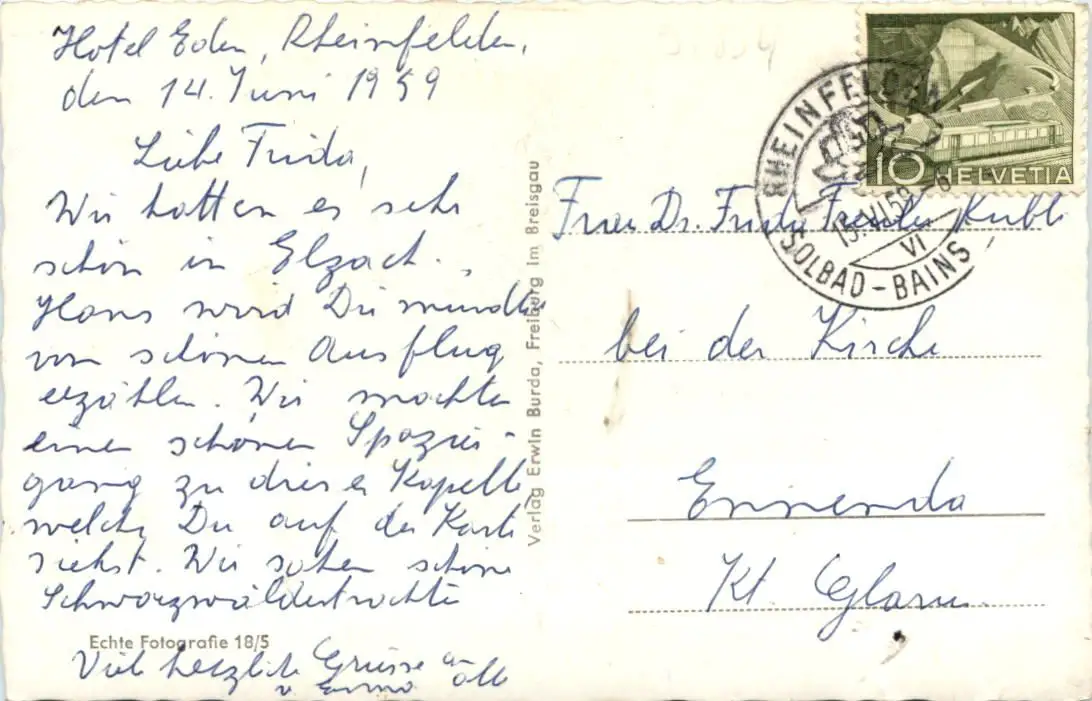 Hotel Eden, Rheinfelden,
den 14. Juni 1959
Liebe Frida,
Wir hatten es sehr
schön in Elzach.,
Hans wird Dir mündlich
vom schönen Ausflug
erzählen. Wir machten
einen schönen Spazier-
gang zu dieser Kapelle
welche Du auf der Karte
siehst. Wir sahen schöne
Schwarzwäldertrachten
Echte Fotografie 18/5
Viele herzliche Grüsse an alle
v. Emma
Verlag Erwin Burda, Freiburg im Breisgau
RHEINFELDEN
SOLBAD - BAINS
VI
10 HELVETIA
Frau Dr. Frida Kubli
bei der Kirche
Ennenda
Kt. Glarus.